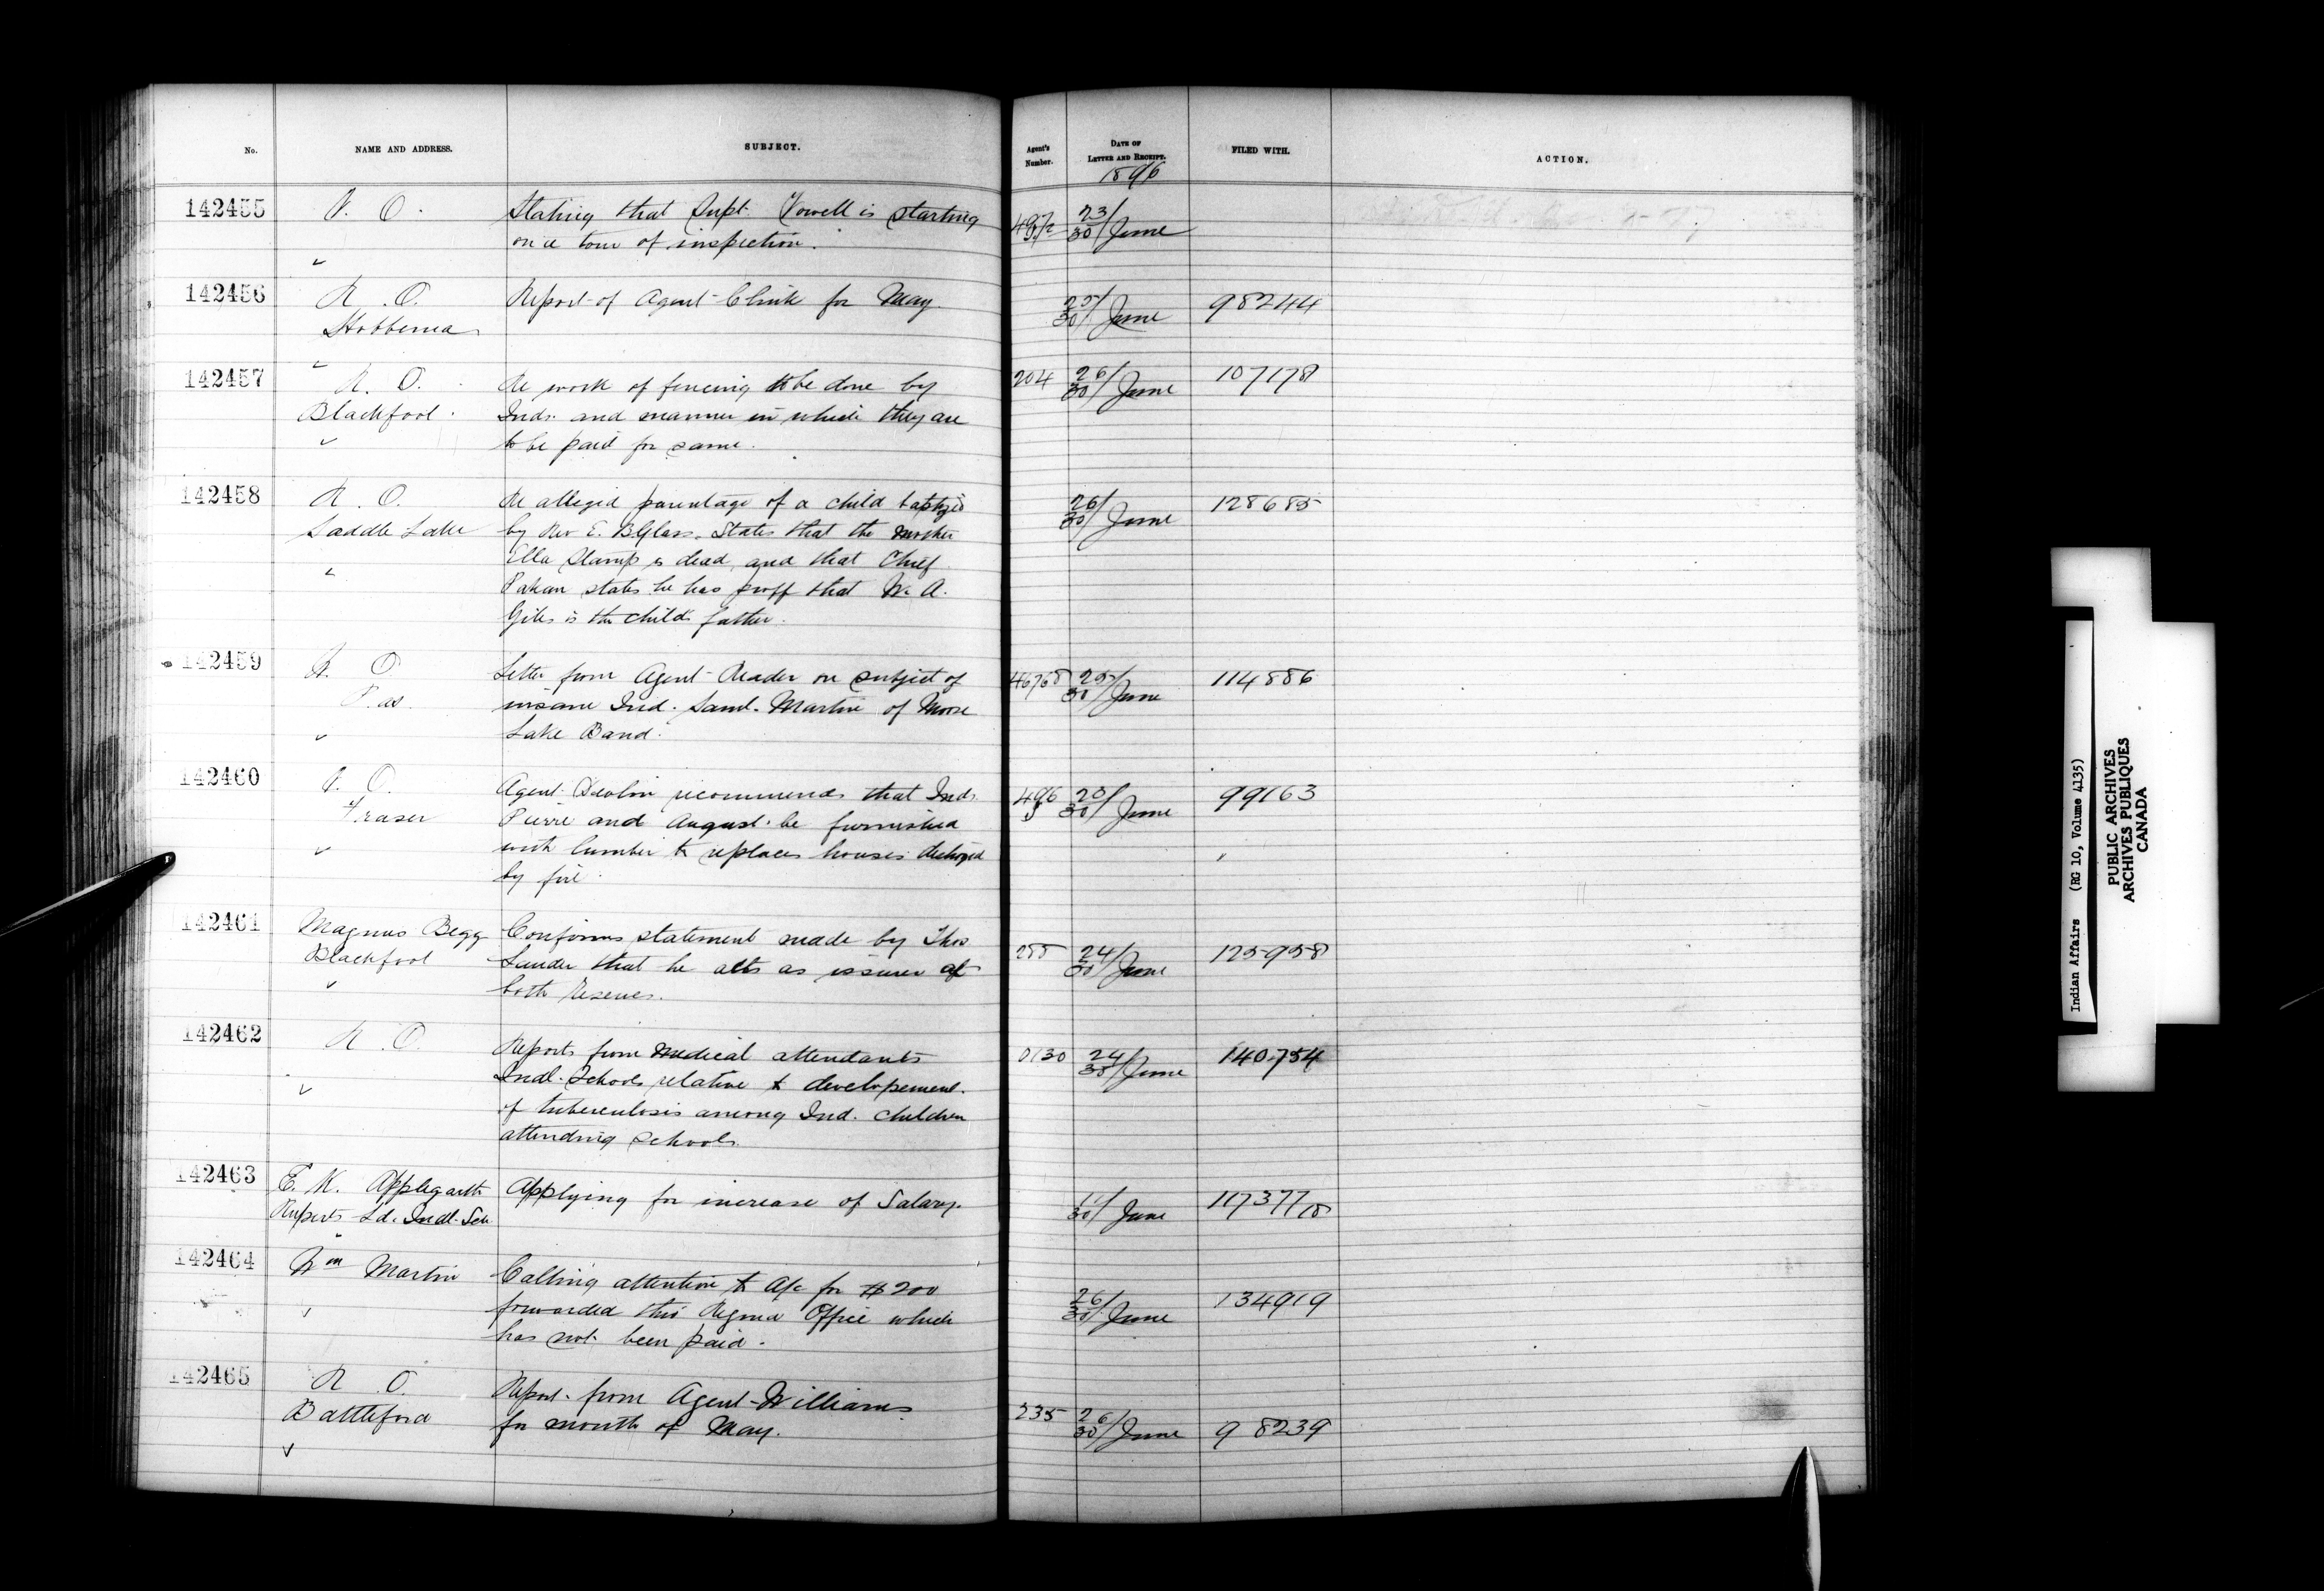 No. NAME AND ADDRESS. SUBJECT. Agent's Number. DATE OF LETTER AND RECEIPT. FILED WITH. ACTION.
1896
142455 V. O. Stating that Supt. Vowell is starting 23/30 June
on a tour of inspection.
142456 R. O. Report of Agent Clink for May 25/30 June 98244
Hobbema
142457 R. O. Re work of fencing to be done by 204 26/30 June 107178
Blackfoot. Inds. and manner in which they are
to be paid for same.
142458 R. O. Re alleged parentage of a child baptized 26/30 June 128685
Saddle Lake by Rev E. B. Glass. States that the mother
Ella Stamp is dead, and that Chief
Pakan states he has proff that W. A.
Giles is the childs father.
142459 W. O. Letter from Agent Reader on subject of 25/30 June 114886
Pas. insane Ind. Saml. Martin of Moose
Lake Band.
142460 V. O. Agent Devlin recommends that Inds. 496 23/30 June 99163
Fraser Pierre and August be furnished
with lumber to replace houses destroyed
by fire.
142461 Magnus Begg Confirms statement made by Thos 255 24/30 June 125958
Blackfoot Lauder that he acts as issuer at
both Reserves.
142462 R. O. Reports from Medical attendants 0130 24/30 June 140754
Indl. Schools relative to developement.
of tuberculosis among Ind. children
attending schools.
142463 E. K. Applegarth Applying for increase of Salary. /30 June 117377
Ruperts Ld. Indl. Sch
142464 Wm Martin Calling attention to A/c for $200 26/30 June 134919
forwarded this Regina Office which
has not been paid.
142465 R O. Report from Agent Williams 235 26/30 June 98239
Battleford for month of May.
Indian Affairs (RG 10, Volume 4135)
PUBLIC ARCHIVES
ARCHIVES PUBLIQUES
CANADA